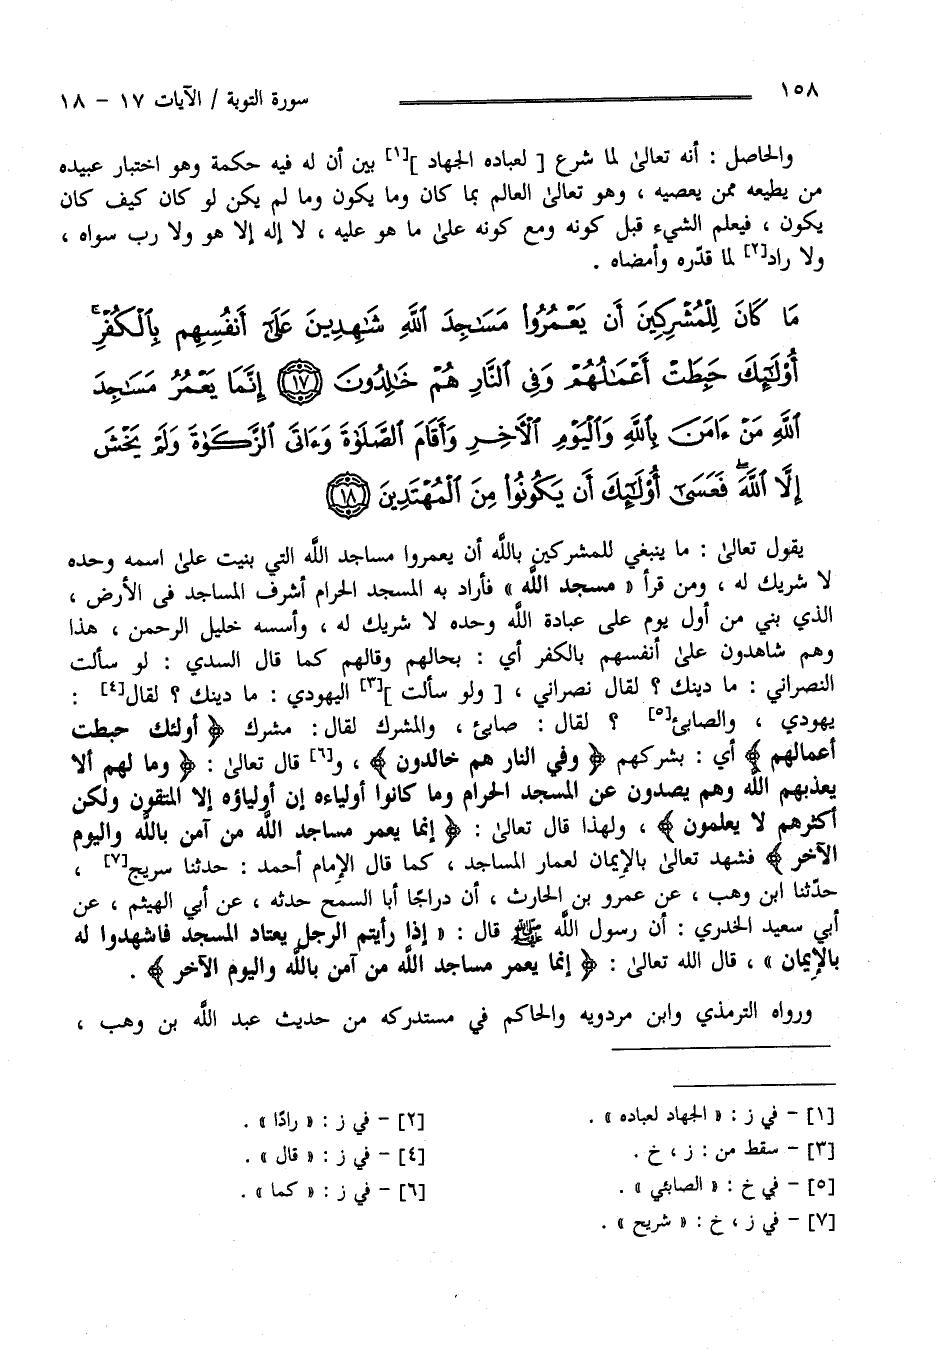 ١٥٨ سورة التوبة / الآيات ١٧ - ١٨
والحاصل : أنه تعالىٰ لما شرع [ لعباده الجهاد ][١] بين أن له فيه حكمة وهو اختبار عبيده
من يطيعه ممن يعصيه ، وهو تعالىٰ العالم بما كان وما يكون وما لم يكن لو كان كيف كان
يكون ، فيعلم الشيء قبل كونه ومع كونه علىٰ ما هو عليه ، لا إله إلا هو ولا رب سواه ،
ولا راد[٢] لما قدّره وأمضاه .
مَا كَانَ لِلْمُشْرِكِينَ أَن يَعْمُرُوا۟ مَسَٰجِدَ ٱللَّهِ شَٰهِدِينَ عَلَىٰٓ أَنفُسِهِم بِٱلْكُفْرِ ۚ
أُو۟لَٰٓئِكَ حَبِطَتْ أَعْمَٰلُهُمْ وَفِى ٱلنَّارِ هُمْ خَٰلِدُونَ ١٧ إِنَّمَا يَعْمُرُ مَسَٰجِدَ
ٱللَّهِ مَنْ ءَامَنَ بِٱللَّهِ وَٱلْيَوْمِ ٱلْـَٔاخِرِ وَأَقَامَ ٱلصَّلَوٰةَ وَءَاتَى ٱلزَّكَوٰةَ وَلَمْ يَخْشَ
إِلَّا ٱللَّهَ ۖ فَعَسَىٰٓ أُو۟لَٰٓئِكَ أَن يَكُونُوا۟ مِنَ ٱلْمُهْتَدِينَ ١٨
يقول تعالىٰ : ما ينبغي للمشركين باللَّه أن يعمروا مساجد اللَّه التي بنيت علىٰ اسمه وحده
لا شريك له ، ومن قرأ « مسجد اللَّه » فأراد به المسجد الحرام أشرف المساجد فى الأرض ،
الذي بني من أول يوم على عبادة اللَّه وحده لا شريك له ، وأسسه خليل الرحمن ، هذا
وهم شاهدون علىٰ أنفسهم بالكفر أي : بحالهم وقالهم كما قال السدي : لو سألت
النصراني : ما دينك ؟ لقال نصراني ، [ ولو سألت ][٣] اليهودي : ما دينك ؟ لقال[٤] :
يهودي ، والصابئ[٥] ؟ لقال : صابئ ، والمشرك لقال : مشرك ﴿ أولئك حبطت
أعمالهم ﴾ أي : بشركهم ﴿ وفي النار هم خالدون ﴾ ، و[٦] قال تعالىٰ : ﴿ وما لهم ألا
يعذبهم اللَّه وهم يصدون عن المسجد الحرام وما كانوا أولياءه إن أولياؤه إلا المتقون ولكن
أكثرهم لا يعلمون ﴾ ، ولهذا قال تعالىٰ : ﴿ إنما يعمر مساجد اللَّه من آمن باللَّه واليوم
الآخر ﴾ فشهد تعالىٰ بالإيمان لعمار المساجد ، كما قال الإمام أحمد : حدثنا سريج[٧] ،
حدّثنا ابن وهب ، عن عمرو بن الحارث ، أن دراجًا أبا السمح حدثه ، عن أبي الهيثم ، عن
أبي سعيد الخدري : أن رسول اللَّه ﷺ قال : « إذا رأيتم الرجل يعتاد المسجد فاشهدوا له
بالإيمان » ، قال الله تعالىٰ : ﴿ إنما يعمر مساجد اللَّه من آمن باللَّه واليوم الآخر ﴾ .
ورواه الترمذي وابن مردويه والحاكم في مستدركه من حديث عبد اللَّه بن وهب ،
[١] - في ز : « الجهاد لعباده » . [٢] - في ز : « رادًا » .
[٣] - سقط من : ز ، خ . [٤] - في ز : « قال » .
[٥] - في خ : « الصابئي » . [٦] - في ز : « كما » .
[٧] - في ز ، خ : « شريح » .